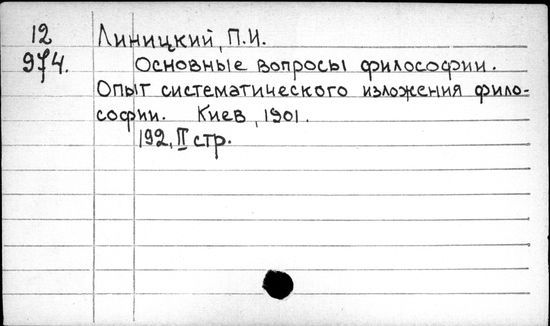 12
974.
Линицкий, П.И.
Основные вопросы философии.
Опыт систематического изложения фило-
софии. Киев, 1901.
192, II стр.